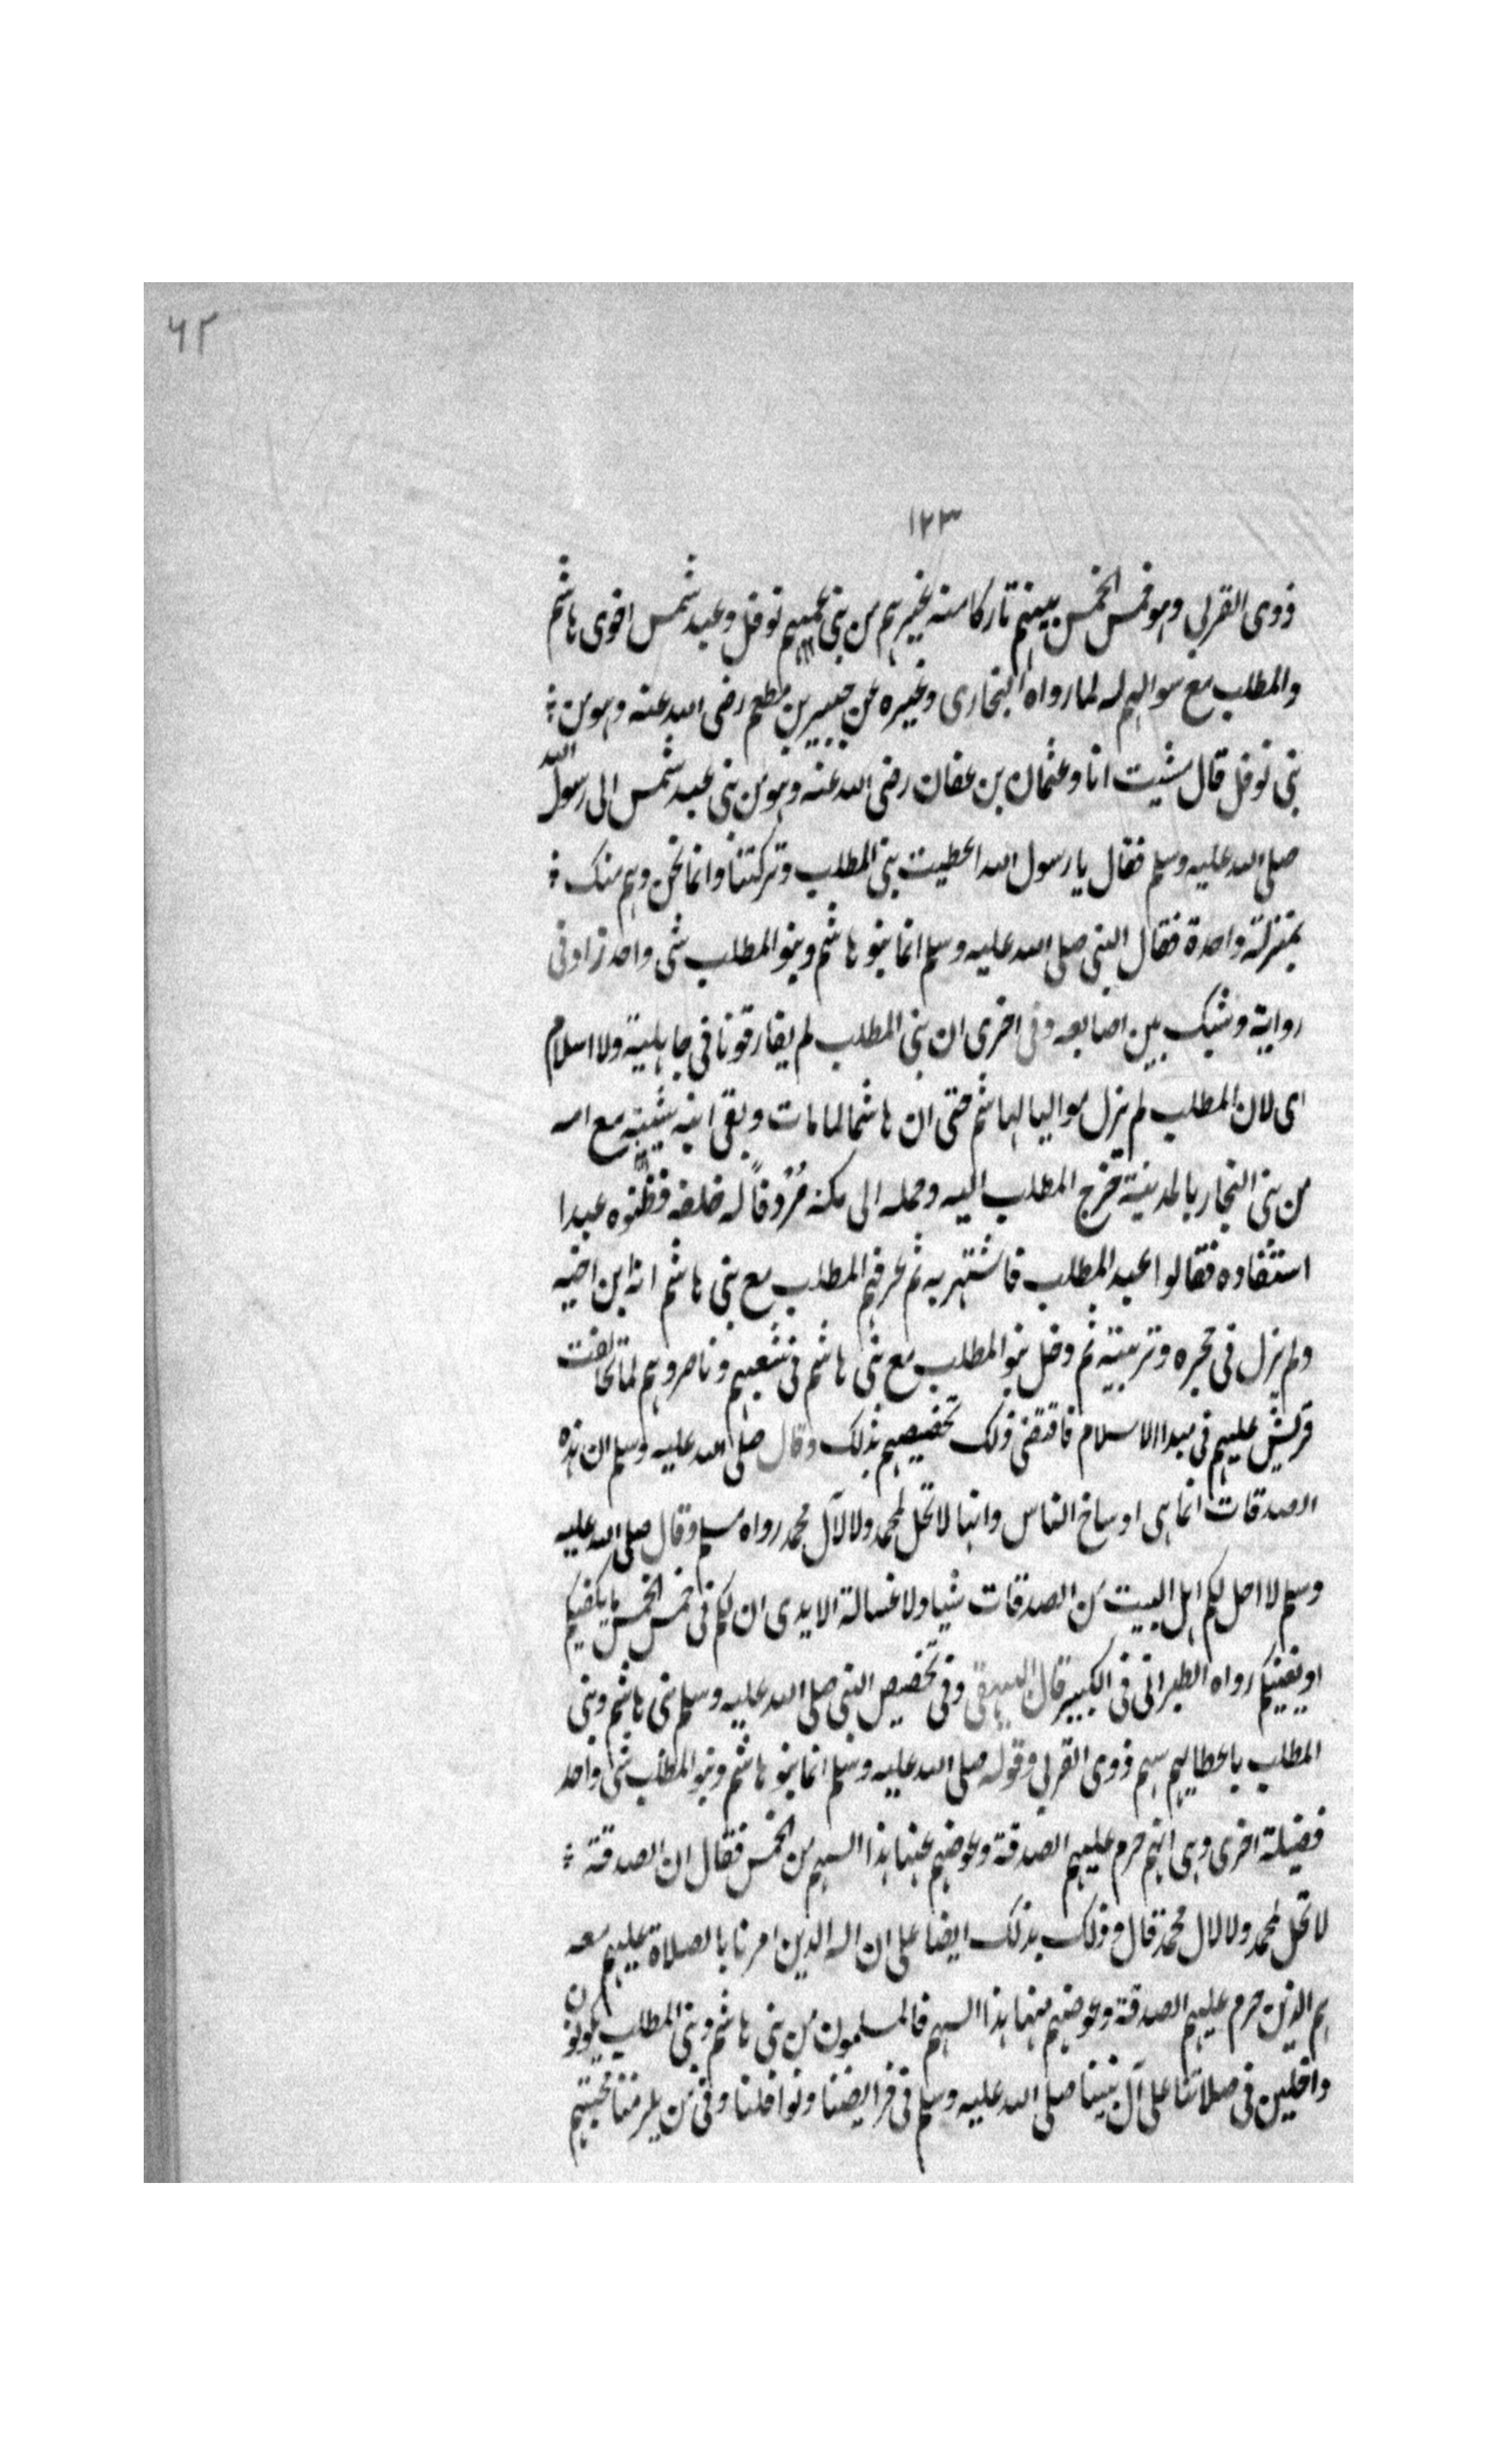 ٦٢
١٢٣
ذوى القربى وهو خمس الخمس بينهم تاركا منه غيرهم من بنى عميهم نوفل وعبد شمس اخوى هاشم
والمطلب مع سوالهم له لما رواه البخارى وغيره عن جبير بن مطعم رضى الله عنه وهو من
بنى نوفل قال مشيت انا وعثمان بن عفان رضى الله عنه وهو من بنى عبد شمس الى رسول الله
صلى الله عليه وسلم فقال يا رسول الله اعطيت بنى المطلب وتركتنا وانما نحن وهم منك
بمنزلة واحدة فقال النبى صلى الله عليه وسلم انما بنو هاشم وبنو المطلب شى واحد زاد فى
رواية وشبك بين اصابعه وفى اخرى ان بنى المطلب لم يفارقونا فى جاهلية ولا اسلام
اى لان المطلب لم يزل مواليا لهاشم حتى ان هاشما لما مات وبقى ابنه شيبة مع امه
من بنى النجار بالمدينة فخرج المطلب اليه وحمله الى مكة مُرْدِفاً له خلفه فظنوه عبدا
استفاده فقالوا عبد المطلب فاشتهر به ثم عرفهم المطلب مع بنى هاشم انه ابن اخيه
ولم يزل فى حجره وتربيته ثم دخل بنو المطلب مع بنى هاشم فى شعبهم وناصروهم لما تحالفت
قريش عليهم فى مبدا الاسلام فاقتضى ذلك تخصيصهم بذلك وقال صلى الله عليه وسلم ان هذه
الصدقات انما هى اوساخ الناس وانها لا تحل لمحمد ولا لآل محمد رواه مسلم وقال صلى الله عليه
وسلم لا احل لكم اهل البيت من الصدقات شيا ولا غسالة الايدى ان لكم فى خمس الخمس ما يكفيكم
او يغنيكم رواه الطبرانى فى الكبير قال البيهقى وفى تخصيص النبى صلى الله عليه وسلم بنى هاشم وبنى
المطلب باعطايهم سهم ذوى القربى وقوله صلى الله عليه وسلم انما بنو هاشم وبنو المطلب شى واحد
فضيلة اخرى وهى انهم حرم عليهم الصدقة وعوضهم عنها هذا السهم من الخمس فقال ان الصدقة
لا تحل لمحمد ولا لال محمد قال وذلك يدلك ايضا على ان اله الذين امرنا بالصلاة عليهم معه
هم الذين حرم عليهم الصدقة وعوضهم منها هذا السهم فالمسلمون من بنى هاشم وبنى المطلب يكونون
داخلين فى صلاتنا على آل نبينا صلى الله عليه وسلم فى فرايضنا ونوافلنا وفى من يلزمنا محبتهم